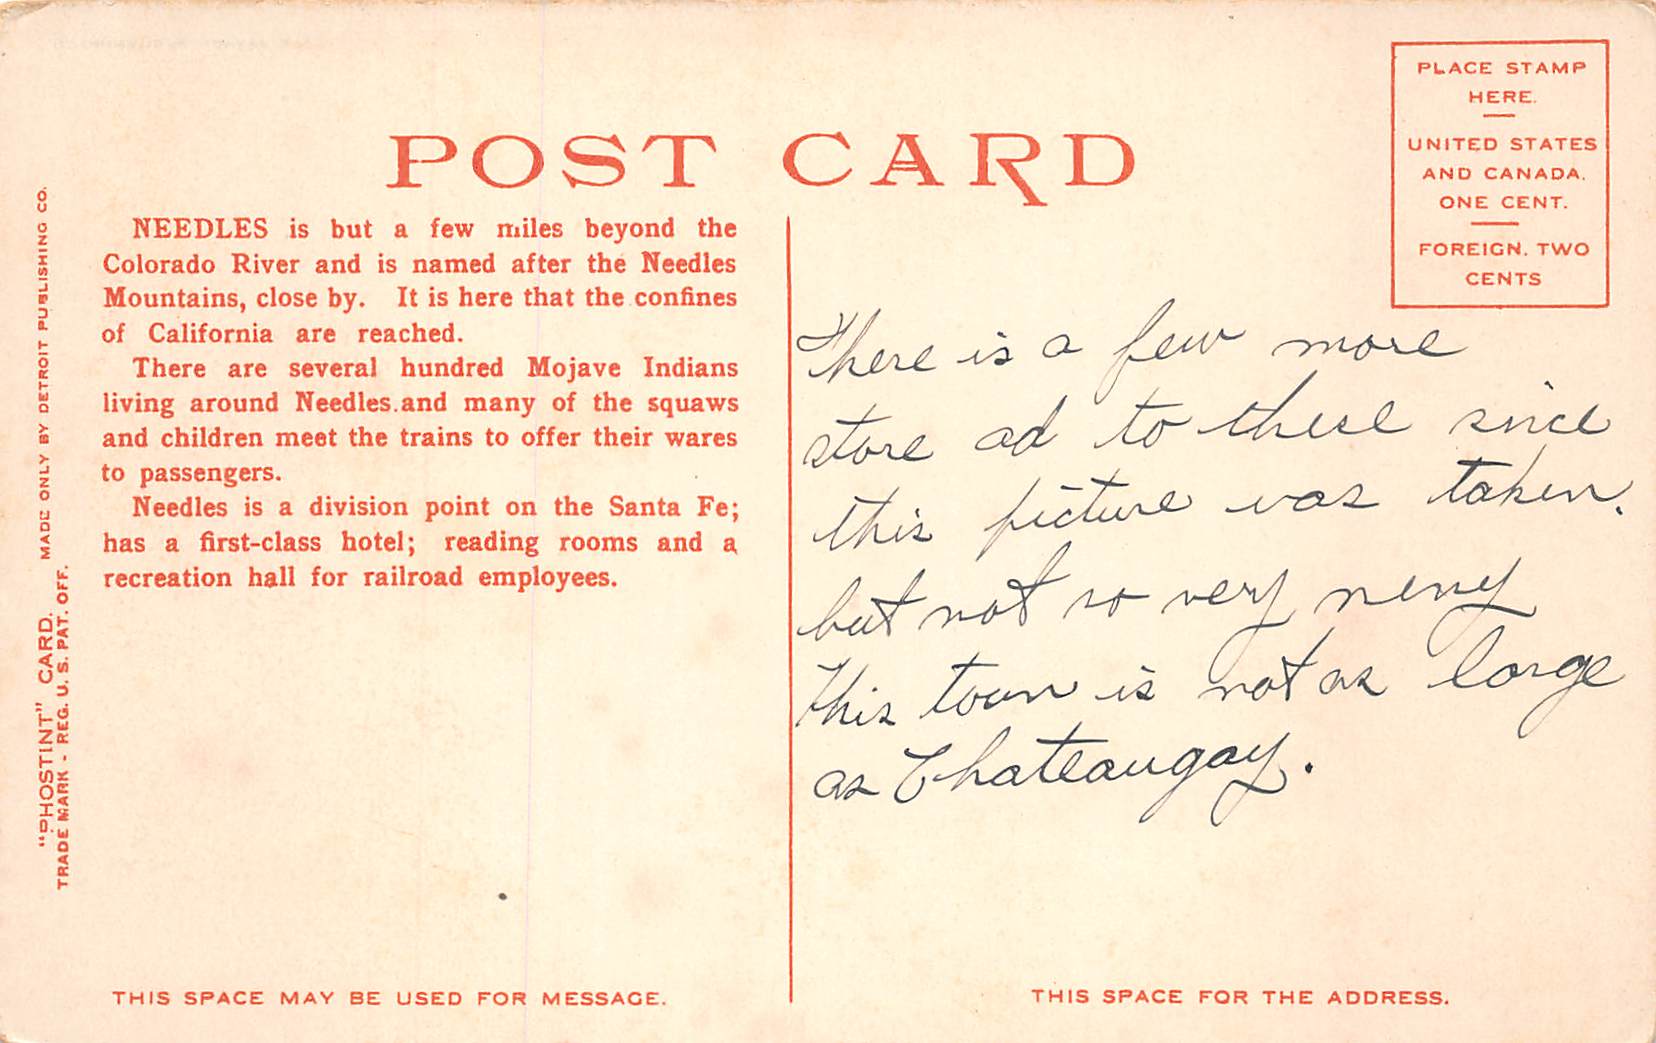 POST CARD
PLACE STAMP
HERE.
UNITED STATES
AND CANADA.
ONE CENT.
FOREIGN. TWO
CENTS
NEEDLES is but a few miles beyond the
Colorado River and is named after the Needles
Mountains, close by. It is here that the confines
of California are reached.
There are several hundred Mojave Indians
living around Needles.and many of the squaws
and children meet the trains to offer their wares
to passengers.
Needles is a division point on the Santa Fe;
has a first-class hotel; reading rooms and a
recreation hall for railroad employees.
There is a few more
store ad to these since
this picture was taken.
but not so very meny
This town is not as large
as Chateaugay.
"PHOSTINT" CARD. MADE ONLY BY DETROIT PUBLISHING CO.
TRADE MARK - REG. U. S. PAT. OFF.
THIS SPACE MAY BE USED FOR MESSAGE.
THIS SPACE FOR THE ADDRESS.